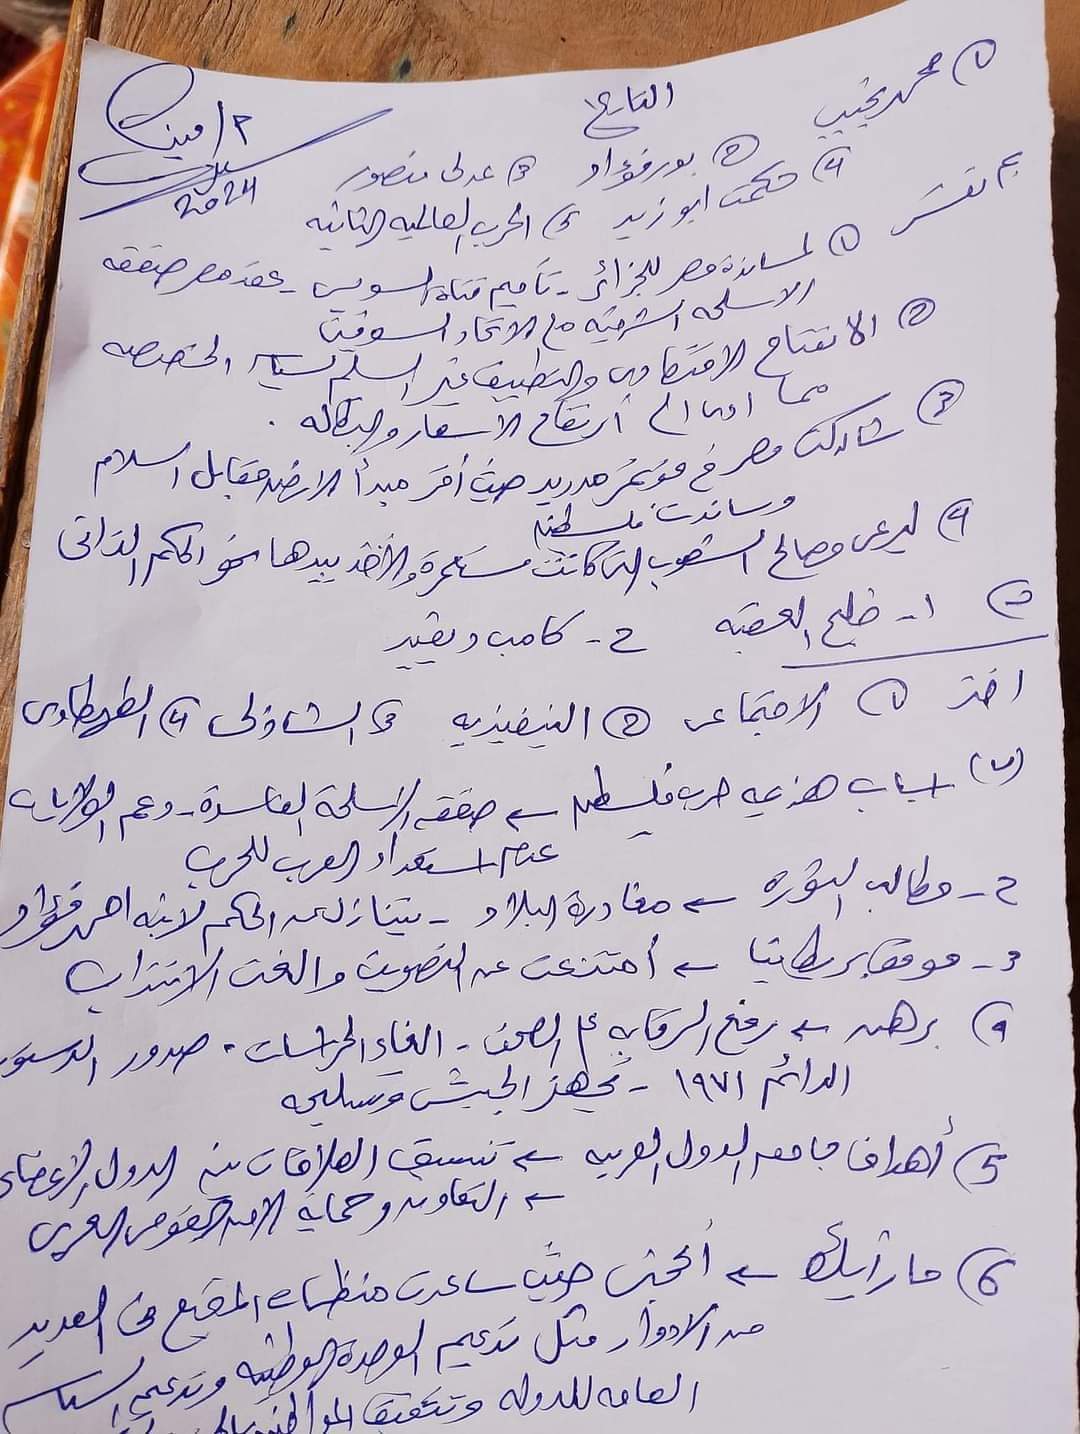 التاريخ
٢/ مينا
2024
① محمد نجيب
② بورفؤاد ③ عدلى منصور
④ حكمت ابو زيد ⑤ الحرب العالمية الثانية
بم تفسر
① لمساندة مصر للجزائر - تأميم قناة السويس - عقد مصر صفقة
الاسلحة الشرقية مع الاتحاد السوفيتى
② الانفتاح الاقتصادى والتطبيق غير السليم لسياسة الخصخصة
مما ادى الى ارتفاع الأسعار والبطالة .
③ شاركت مصر فى مؤتمر مدريد حيث أقر مبدأ الارض مقابل السلام
وساندت فلسطين
④ ليرعى مصالح الشعوب التى كانت مستعمرة والأخذ بيدها نحو الحكم الذاتى
١- خليج العقبة ٢- كامب ديفيد
اختر ① الاجتماعى ② التنفيذية ③ الشاذلى ④ الطهطاوى
اسباب هزيمة حرب فلسطين ← صفقة الاسلحة الفاسدة - دعم الولايات
عدم استعداد العرب للحرب
٢- مطالب الثورة ← مغادرة البلاد - يتنازل عن الحكم لابنه احمد فؤاد
3- موقف بريطانيا ← أمتنعت عن التصويت والغت الانتداب
برهن ← رفع الرقابة على الصحف - الغاء الحراسات - صدور الدستور
الدائم ١٩٧١ - تجهيز الجيش وتسليحه
5) أهداف جامعه الدول العربيه ← تنسيق العلاقات بين الدول الاعضاء
← التعاون وحماية الامن القومى العربى
6) ما رأيك ← أتحقق حيث ساعدت منظمات المجتمع فى العديد
من الادوار مثل تدعيم الوحدة الوطنية وتدعيم السياسة
العامه للدولة وتحقيق